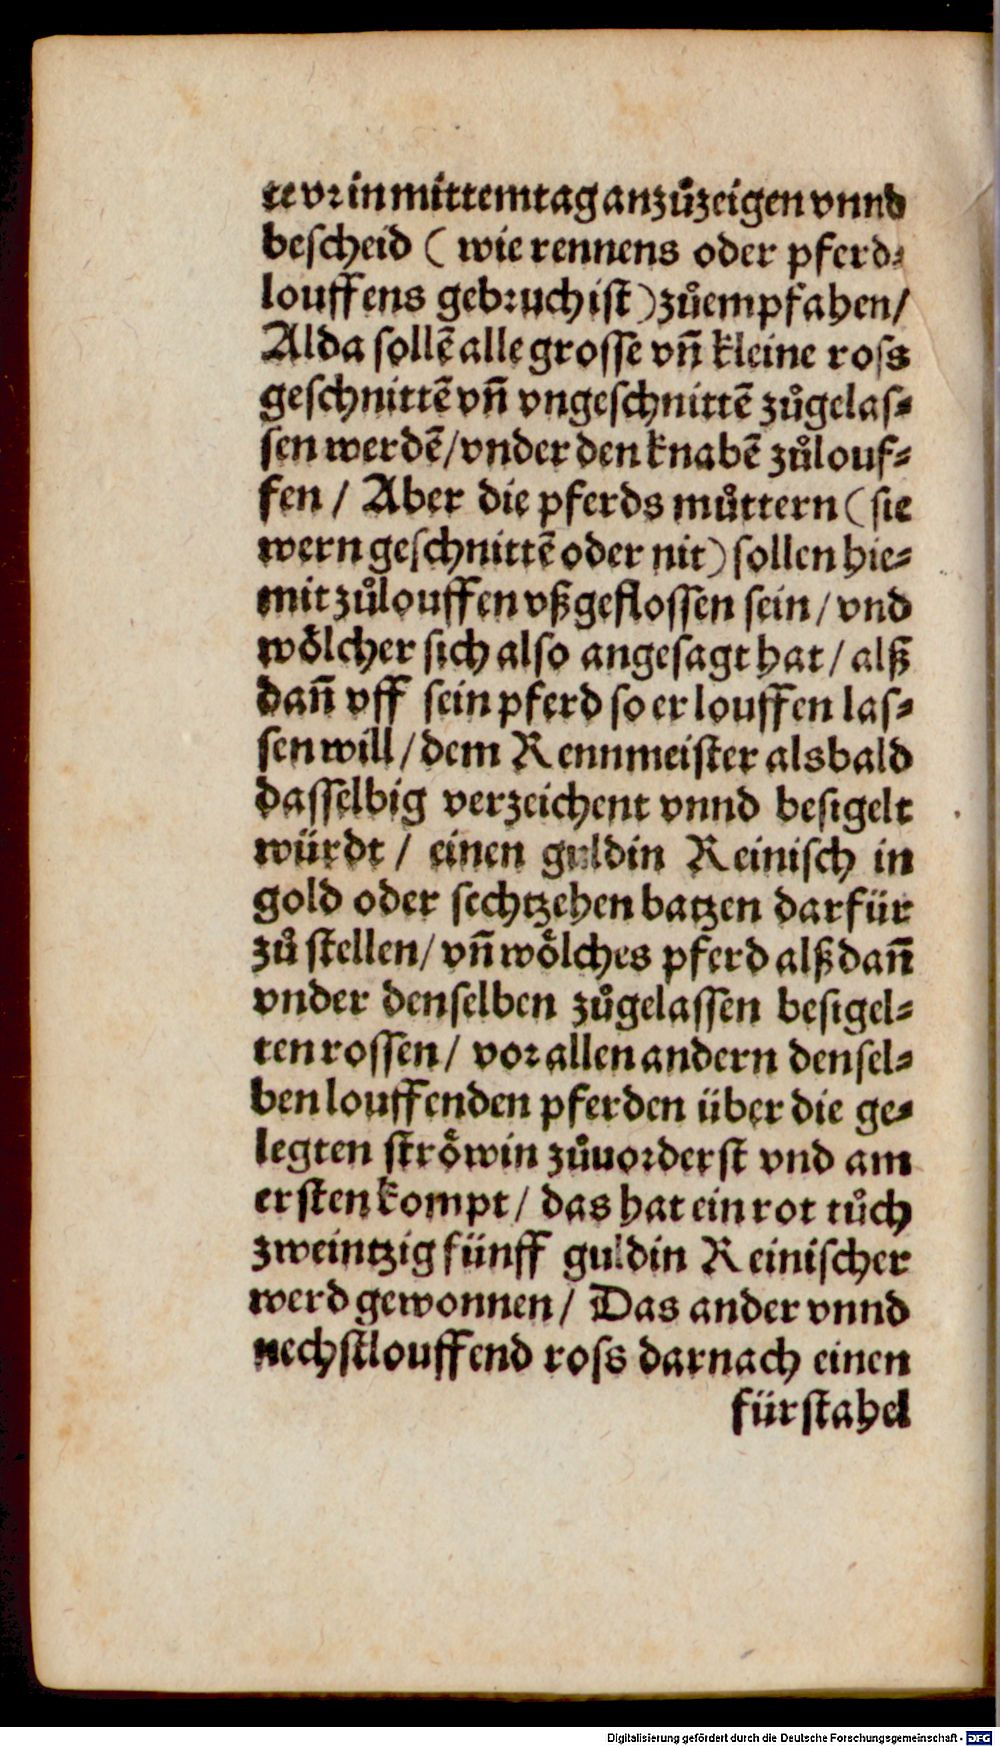 te vꝛ in mittemtag anzůzeigen vnnd
bescheid ( wie rennens oder pferd⸗
louffens gebꝛuch ist ) zůempfahen/
Alda sollẽ alle grosse vñ kleine ross
geschnittẽ vñ vngeschnittẽ zůgelas⸗
sen werdẽ/ vnder den knabẽ zůlouf⸗
fen / Aber die pferds můttern ( sie
wern geschnittẽ oder nit) sollen hie⸗
mit zůlouffen vßgeflossen sein / vnd
woͤlcher sich also angesagt hat / alß
dañ vff sein pferd so er louffen las⸗
sen will / dem Rennmeister alsbald
dasselbig verzeichent vnnd besigelt
würdt / einen guldin Reinisch in
gold oder sechtzehen batzen darfür
zů stellen/ vñ woͤlches pferd alß dañ
vnder denselben zůgelassen besigel⸗
ten rossen/ voꝛ allen andern densel⸗
ben louffenden pferden über die ge⸗
legten stroͤwin zůuoꝛderst vnd am
ersten kompt / das hat ein rot tůch
zweintzig fünff guldin Reinischer
werd gewonnen / Das ander vnnd
nechstlouffend ross darnach einen
fürstahel
Digitalisierung gefördert durch die Deutsche Forschungsgemeinschaft - DFG